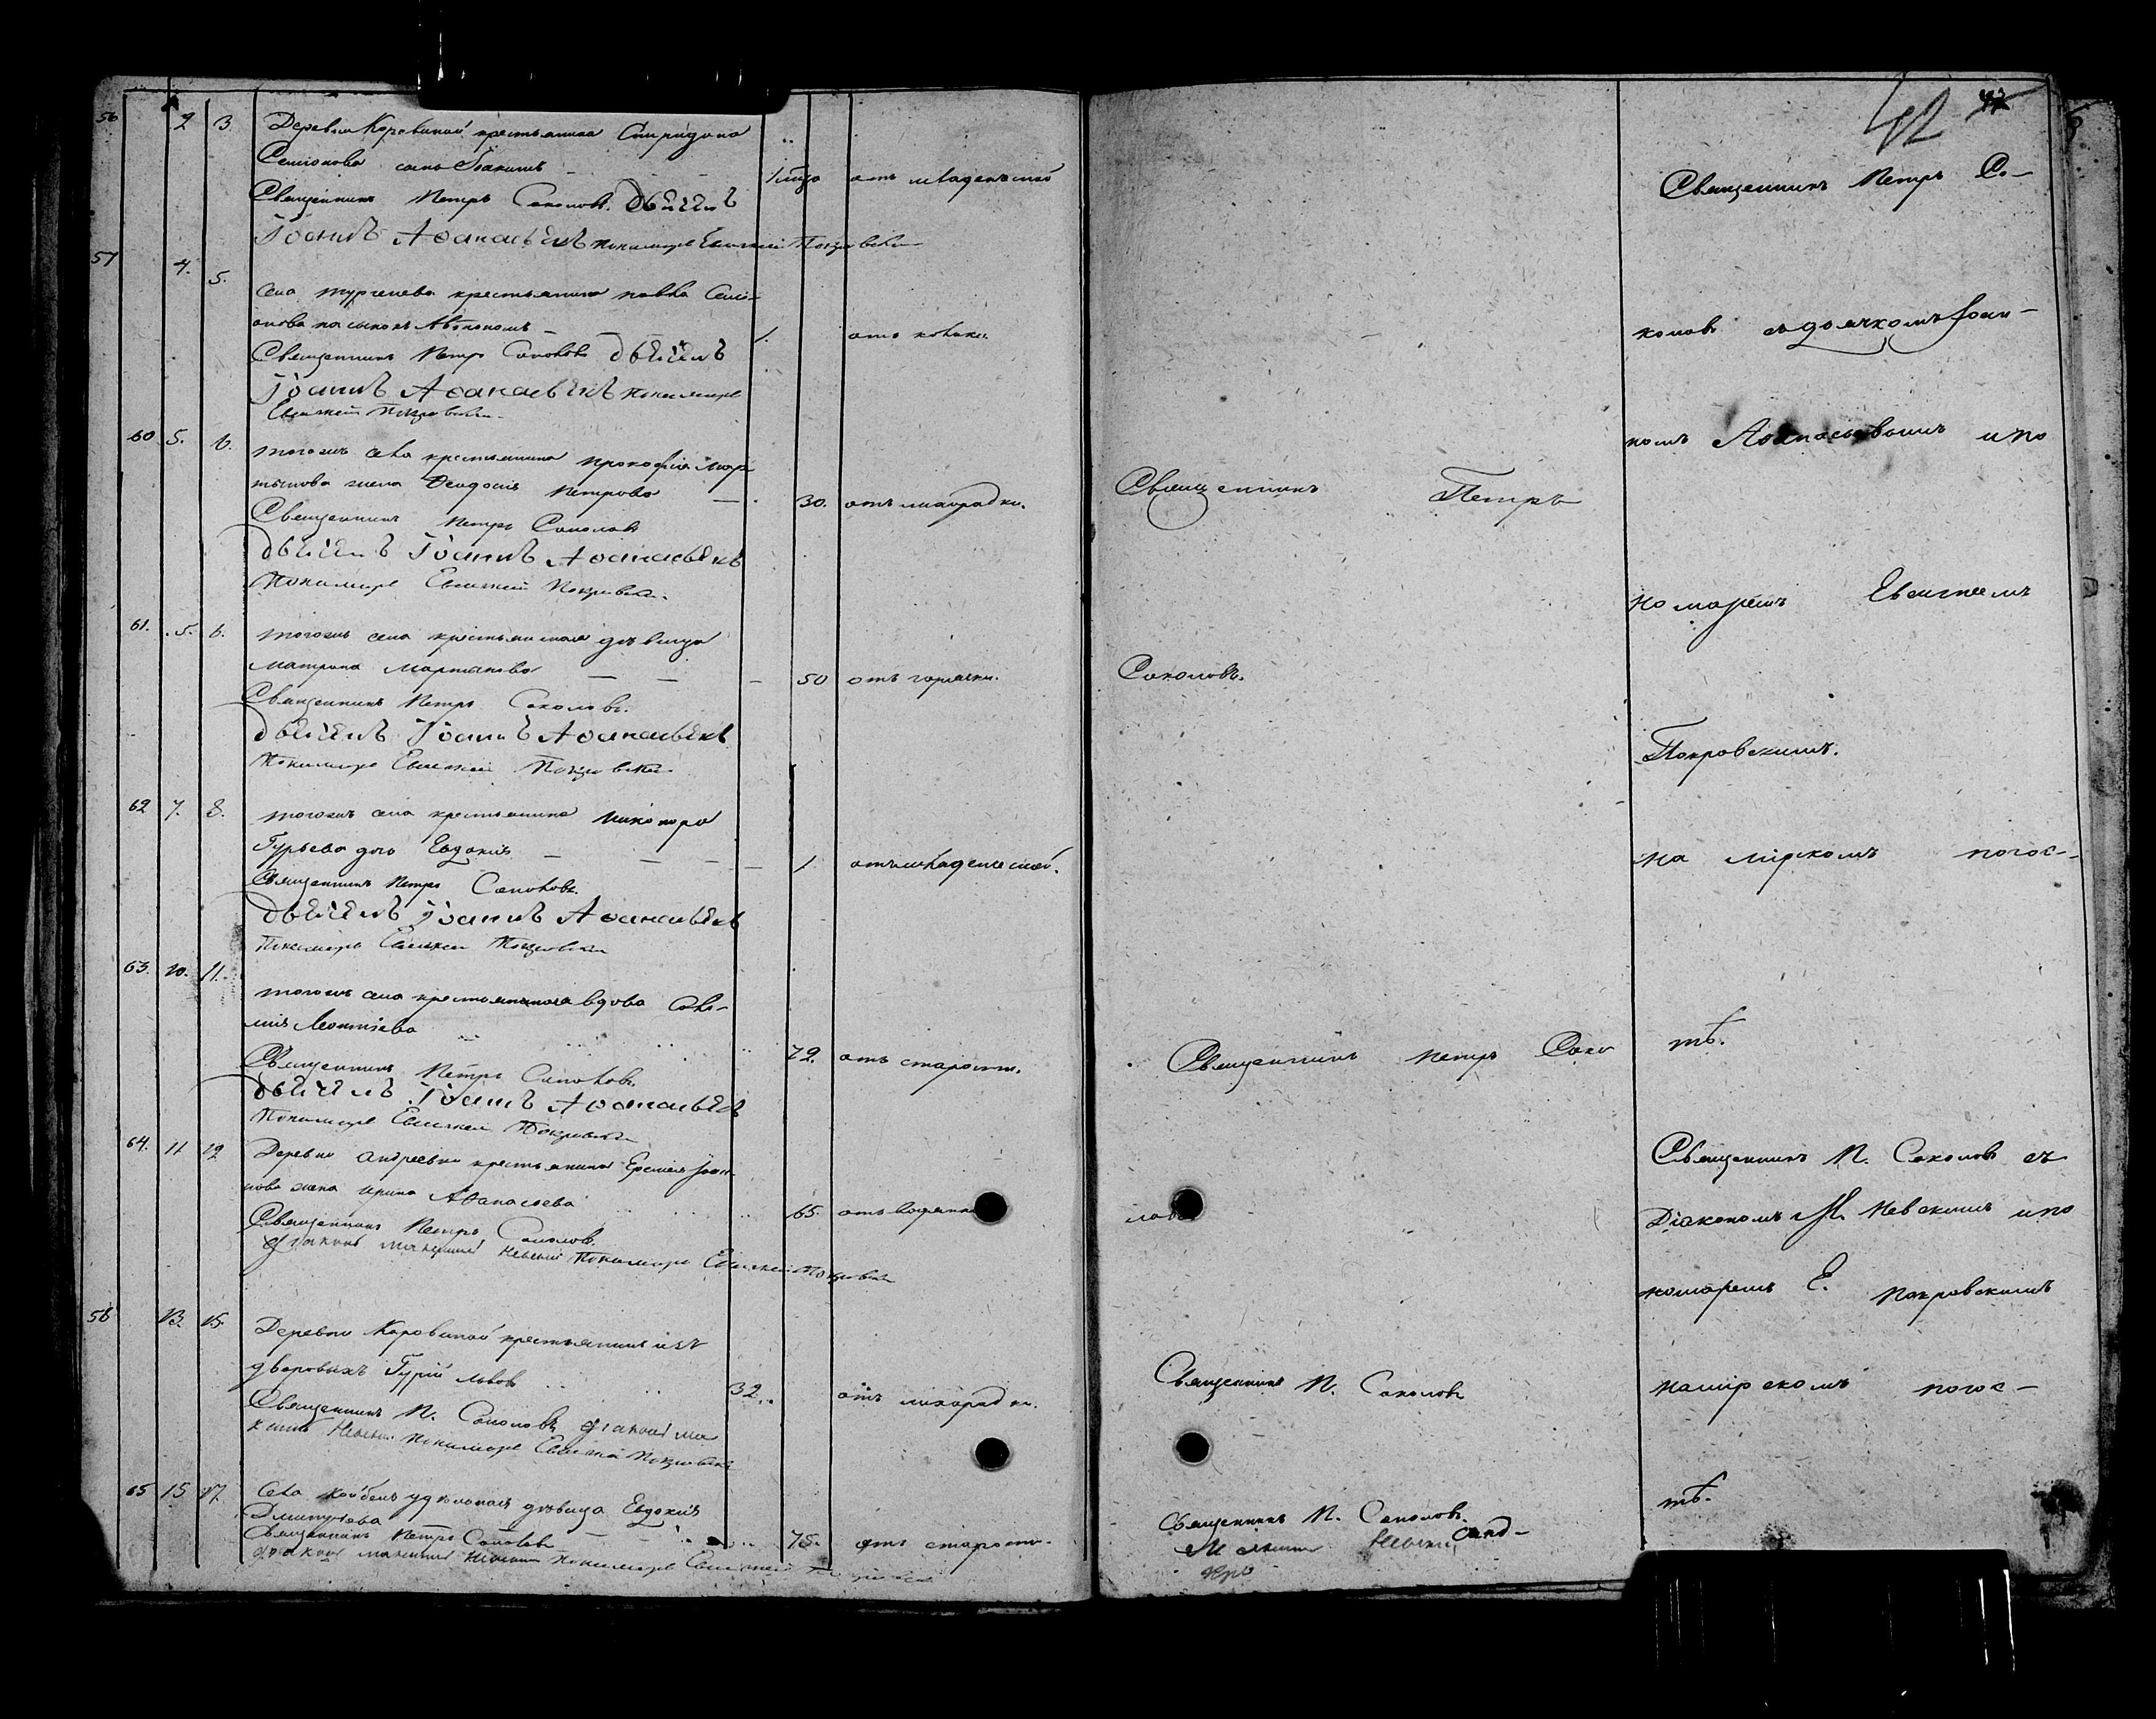 42
56 2 3 Деревни Коровиной крестьянина Спиридона
Семіонова сынъ Іоакимъ 1 отъ младенческой
Священникъ Петръ Соколовъ. дьячекъ
Іоаннъ Аѳанасьевъ пономарь Евгеній Покровскій
57 4. 5.
села тургенева крестьянина павла Семі-
онова сынъ Автономъ 1. отъ
Священникъ Петръ Соколовъ дьячекъ
Іоаннъ Аѳанасьевъ пономарь
Евгеній Покровскій.
60 5. 6. тогожъ села крестьянина прокофія Мар
тынова жена Ѳеодосія Петрова 30. отъ лихорадки.
Священникъ Петръ Соколовъ
дьячекъ Іоаннъ Аѳанасьевъ
Пономарь Евгеній Покровскій.
61. 5. 6. тогожъ села крестьянская дѣвица
матрона мартынова 50 отъ горячки.
Священникъ Петръ Соколовъ.
дьячекъ Іоаннъ Аѳанасьевъ
Пономарь Евгеній Покровскій
62 7. 8. тогожъ села крестьянина никанора
Гурьева дочь Евдокія 1. отъ младенческой.
Священникъ Петръ Соколовъ.
дьячекъ Іоаннъ Аѳанасьевъ
Пономарь Евгеній Покровскій
63. 10. 11.
тогожъ села крестьянская вдова
Леонтіева 72. отъ старости.
Священникъ Петръ Соколовъ.
дьячекъ Іоаннъ Аѳанасьевъ
Пономарь Евгеній Покровскій
64. 11 12 Деревни андреевки крестьянина Еремея Іоан
нова жена ирина Аѳанасьева 65. отъ
Священникъ Петръ Соколовъ.
діаконъ Невскій Пономарь Евгеній Покровскій
58 13. 15. Деревни Коровиной крестьянинъ изъ
дворовыхъ Гурій львовъ 32. отъ лихорадки.
Священникъ П. Соколовъ діаконъ
Невскій пономарь Евгеній Покровскій
65 15 17. Села дѣвица Евдокія
Дмитріева 75. отъ старости.
Священникъ Петръ Соколовъ
діаконъ Невскій пономарь Евгеній
Священникъ Петръ
Соколовъ.
Священникъ Петръ Соко
ловъ
Священникъ П. Соколовъ
Священникъ П. Соколовъ.
Невскій
Священникъ Петръ Со-
коловъ съ дьячкомъ Іоан-
номъ Аѳанасьевымъ и по
номаремъ Евгеніемъ
Покровскимъ.
На мірскомъ погос-
тѣ.
Священникъ П. Соколовъ съ
Діакономъ М. Невскимъ и по
номаремъ Е. Покровскимъ
на мірскомъ погос-
тѣ.